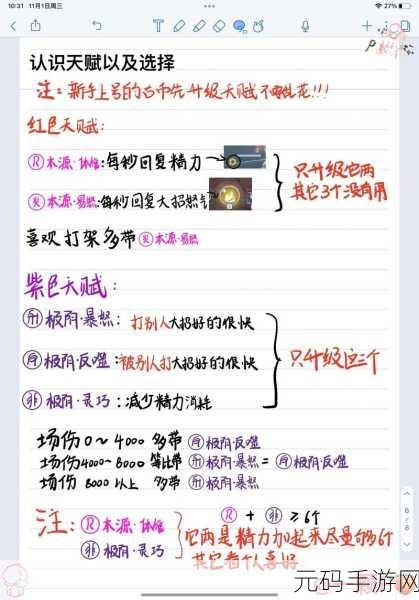 10:31 11月1日周三
27%
认识天赋以及选择
注：新手上号的石币先升级天赋不要乱花！！！
红色天赋：
只本源·体能：每秒回复精力
炅本源·易怒：每秒回复大招怒气
只升级它两
其它3个没有用
喜欢打架多带炅本源·易怒
紫色天赋：
刑极阴·暴怒：打别人大招好的很快
极阴·反噬：被别人打大招好的很快
非极阴·灵巧：减少精力消耗
只升级这三个
场伤0～4000 多带 极阴·反噬
场伤4000～8000 等比带 极阴·暴怒 = 极阴·反噬
场伤 8000 以上 多带 极阴·暴怒
注：本源·体能
非极阴·灵巧
+ 非 ≥ 6个
它两是精力加起来尽量够6个
其它看个人喜好
6/8
元码手游网